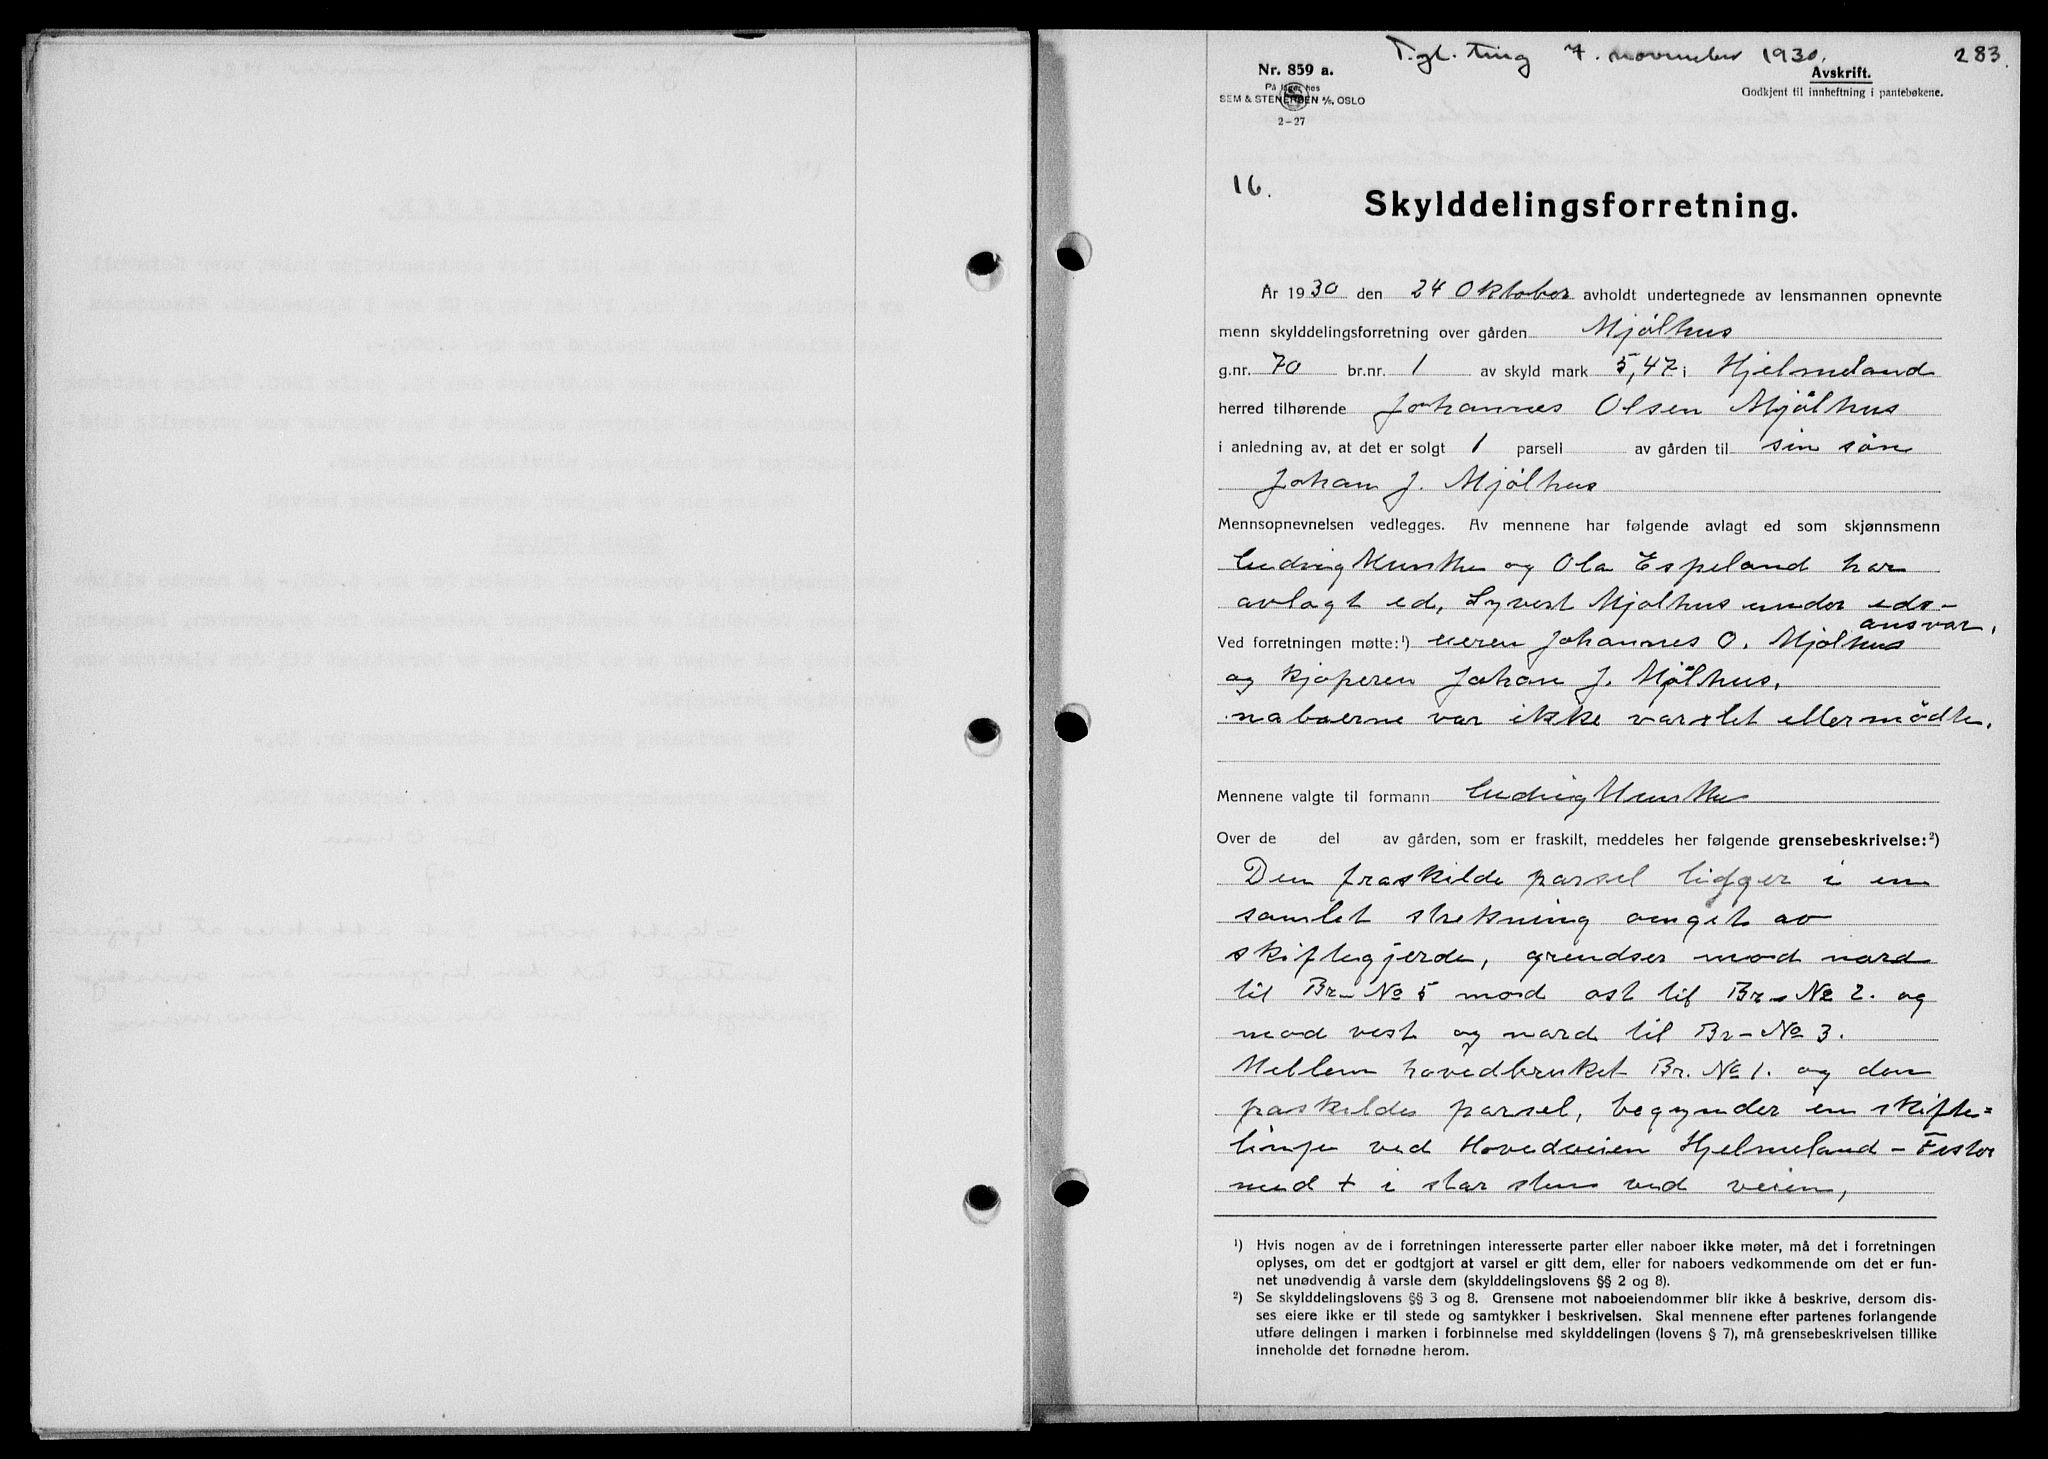 T.gl. ting 7. november 1930.
283.
Nr. 859 a.
På lager hos
SEM & STENERSEN A/S, OSLO
2-27
Avskrift.
Godkjent til innheftning i pantebøkene.
16.
Skylddelingsforretning.
År 1930 den 24 Oktober avholdt undertegnede av lensmannen opnevnte
menn skylddelingsforretning over gården Mjølhus
g.nr. 70 br.nr. 1 av skyld mark 5,47 i Hjelmeland
herred tilhørende Johannes Olsen Mjølhus
i anledning av, at det er solgt 1 parsell av gården til sin søn
Johan J. Mjølhus
Mennsopnevnelsen vedlegges. Av mennene har følgende avlagt ed som skjønnsmenn
Ludvig Hunske og Ola Espeland har
avlagt ed, Syvert Mjølhus under eds-
ansvar.
Ved forretningen møtte:¹) eieren Johannes O. Mjølhus
og kjøperen Johan J. Mjølhus.
naboerne var ikke varslet eller mødte.
Mennene valgte til formann Ludvig Hunske
Over de del av gården, som er fraskilt, meddeles her følgende grensebeskrivelse:²)
Den fraskilde parsel ligger i en
samlet strekning omget av
skiftegjerde, grendser mod nord
til Br-No 5 mod ost til Br-No 2. og
mod vest og nord til Br-No 3.
Mellem hovedbruket Br. No 1. og den
fraskilde parsel, begynder en skifte=
linje ved Hovedveien Hjelmeland-Fister
med + i stor sten ved veien,
¹) Hvis nogen av de i forretningen interesserte parter eller naboer ikke møter, må det i forretningen
oplyses, om det er godtgjort at varsel er gitt dem, eller for naboers vedkommende om det er fun-
net unødvendig å varsle dem (skylddelingslovens §§ 2 og 8).
²) Se skylddelingslovens §§ 3 og 8. Grensene mot naboeiendommer blir ikke å beskrive, dersom dis-
ses eiere ikke er til stede og samtykker i beskrivelsen. Skal mennene efter partenes forlangende
utføre delingen i marken i forbinnelse med skylddelingen (lovens § 7), må grensebeskrivelsen tillike
inneholde det fornødne herom.